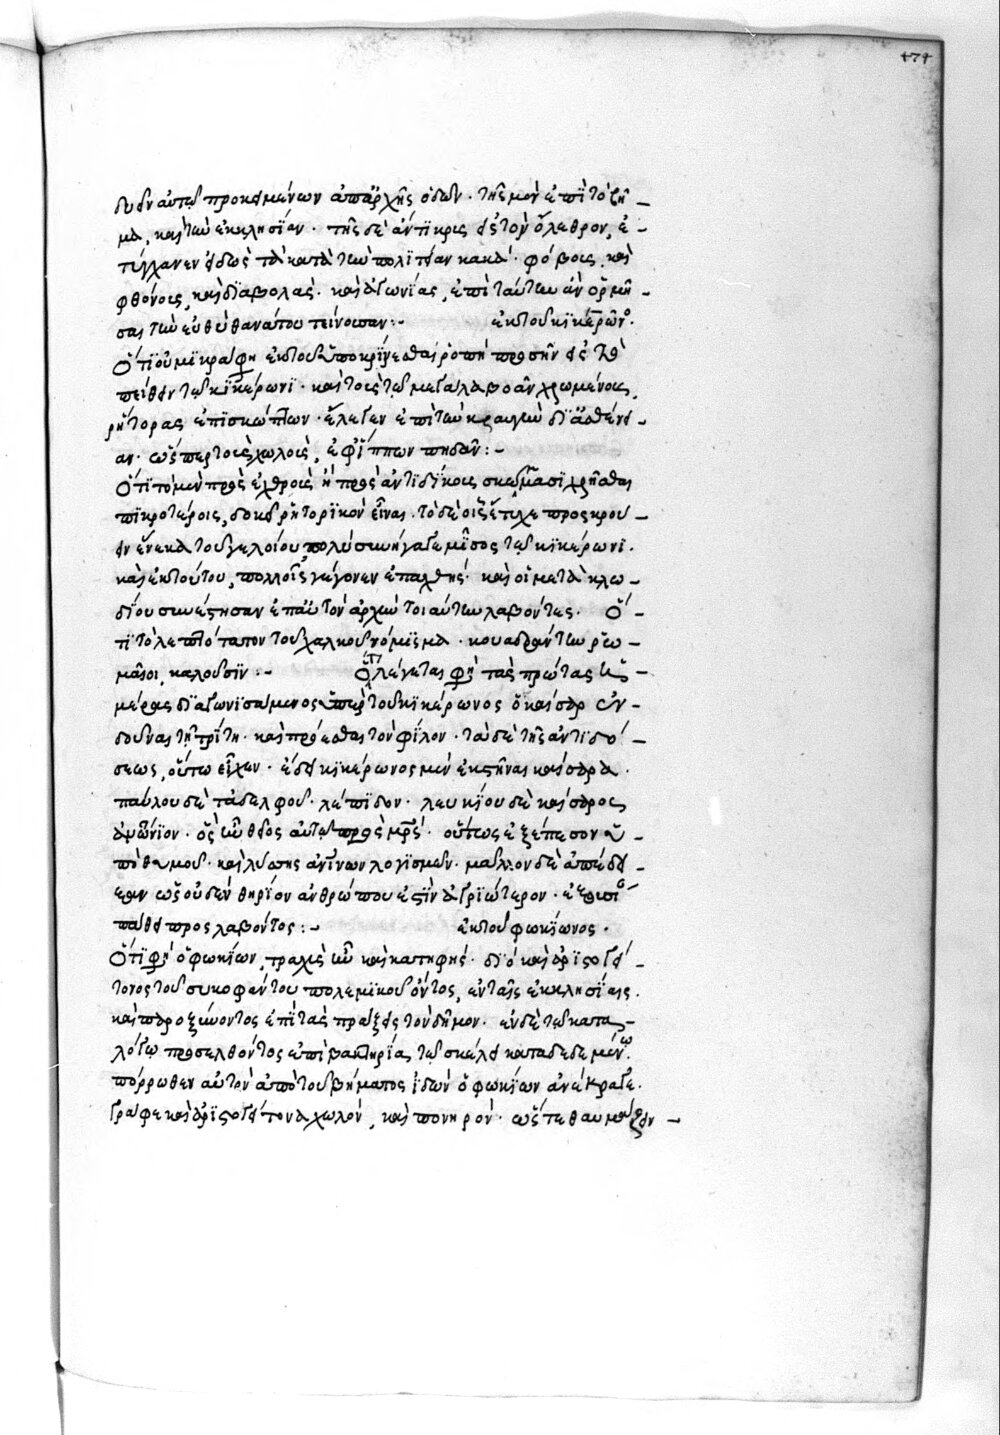 474
δυεῖν αὐτῷ προκειμένων ἀπαρχῆς ὁδῶν· τῆς μὲν ἐπὶ τὸ βῆ
μα, καὶ τὴν ἐκκλησίαν· τῆς δὲ ἄντικρυς εἰς τὸν ὄλεθρον, ἐ
τύγχανεν εἰδὼς τὰ κατὰ τὴν πολιτείαν κακὰ· φόβους, καὶ
φθόνους, καὶ διαβολὰς· καὶ ἀγωνίας, ἐπὶ ταύτην ἂν ὁρμῆ
σαι τὴν εὐθὺ θανάτου τείνουσαν:- ἐκ τοῦ κικέρωνος.
Ὅτι οὐ μικρὰ φη ἐκ τοῦ ὑποκρίνεσθαι ῥοπὴ προσῆν εἰς τὸ
πείθειν τῷ κικέρωνι· καὶ τοὺς τῷ μεγάλα βοᾶν χρωμένους,
ῥήτορας ἐπισκώπτων· ἔλεγεν ἐπὶ τὴν κραυγὴν δι' ἀσθένει
αν· ὥσπερ τοὺς χωλοὺς, ἐφ' ἵππον πηδᾶν:-
Ὅτι τὸ μὲν πρὸς ἐχθροὺς ἢ πρὸς ἀντιδίκους σκώμμασι χρῆσθαι
πικροτέροις, δοκεῖ ῥητορικὸν εἶναι. τὸ δὲ οἷς ἔτυχε προσκρού
ειν ἕνεκα τοῦ γελοίου, πολὺ συνήγαγε μῖσος τῷ κικέρωνι.
καὶ ἐκ τούτου, πολλοῖς γέγονεν ἐπαχθής· καὶ οἱ μετὰ κλω
δίου συνέστησαν ἐπ' αὐτὸν ἀρχὴν τοιαύτην λαβόντες. Ὅ
τι τὸ λεπτότατον τοῦ χαλκοῦ νόμισμα· κουαδράντην ῥω
μαῖοι, καλοῦσιν:- Ὅτι λέγεται φη τὰς πρώτας ἡ
μέρας διαγωνισάμενος ὑπὲρ τοῦ κικέρωνος ὁ καῖσαρ ἐν
δοῦναι τῇ τρίτῃ· καὶ προέσθαι τὸν φίλον· τὰ δὲ τῆς ἀντιδό
σεως, οὕτω εἶχεν· ἔδει κικέρωνος μὲν ἐκστῆναι καίσαρα·
παύλου δὲ τἀδελφοῦ· λέπιδον· λευκίου δὲ καίσαρος
ἀντώνιον· ὃς ἦν θεῖος αὐτῷ πρὸς μητρός· οὕτως ἐξέπεσον ὑ
πὸ θυμοῦ· καὶ λύσσης ἀνθρωπίνων λογισμῶν· μᾶλλον δὲ ἀπέδει
ξαν ὡς οὐδὲν θηρίον ἀνθρώπου ἐστὶν ἀγριώτερον· ἐξουσίαν
πάθει προσλαβόντος:- ἐκ τοῦ φωκίωνος.
Ὅτι φη ὁ φωκίων, τραχὺς ἦν καὶ κατηφής· διὸ καὶ ἀριστογεί
τονος τοῦ συκοφάντου πολεμικοῦ ὄντος, ἐν ταῖς ἐκκλησίαις.
καὶ παροξύνοντος ἐπὶ τὰς πράξεις τὸν δῆμον· ἐν δὲ τῷ κατα
λόγῳ προσελθόντος ἐπὶ βακτηρίας τῷ σκέλει καταδεδεμένῳ.
πόρρωθεν αὐτὸν ἀπὸ τοῦ βήματος ἰδὼν ὁ φωκίων ἀνέκραγε.
γράφε καὶ ἀριστογείτονα χωλόν, καὶ πονηρόν· ὥστε θαυμάζειν